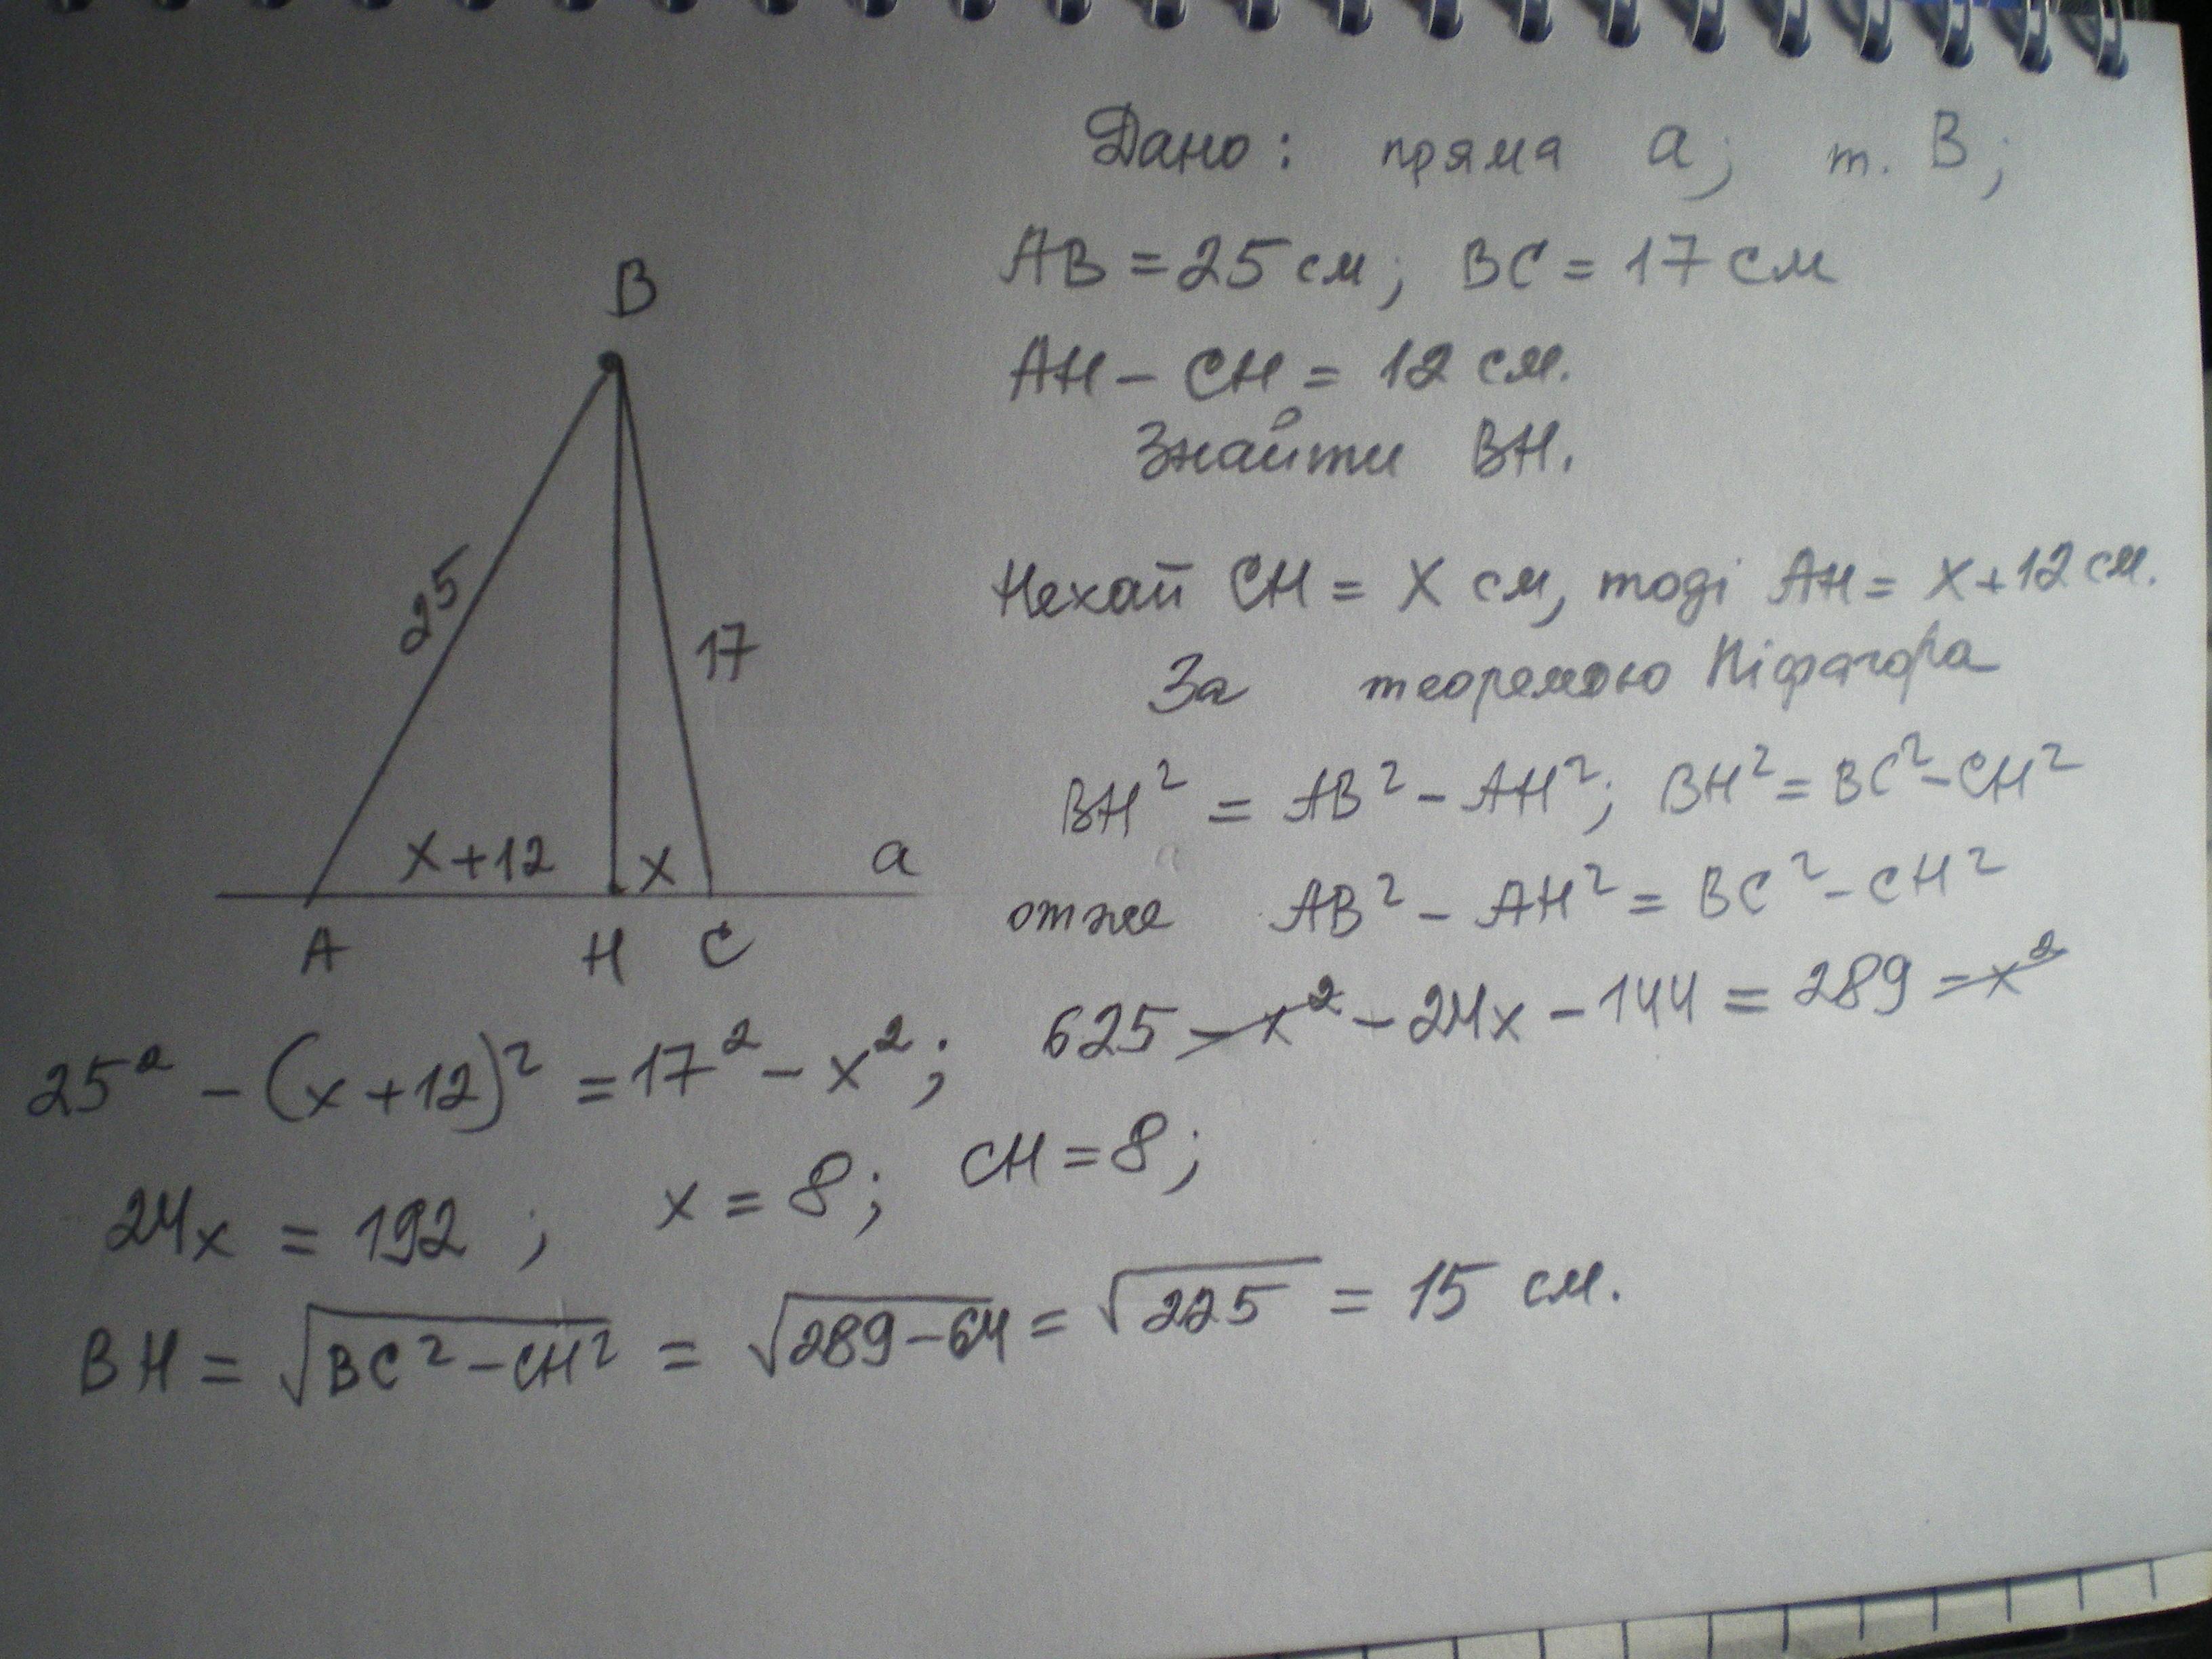 Дано: пряма a; т. B;
AB = 25 см; BC = 17 см
AH - CH = 12 см.
Знайти BH.
B
25
17
x+12 x a
A H C
Нехай CH = X см, тоді AH = X+12 см.
За теоремою Піфагора
BH² = AB² - AH²; BH² = BC² - CH²
отже AB² - AH² = BC² - CH²
25² - (x+12)² = 17² - x²; 625 - x² - 24x - 144 = 289 - x²
24x = 192 ; x = 8; CH = 8;
BH = √BC² - CH² = √289 - 64 = √225 = 15 см.